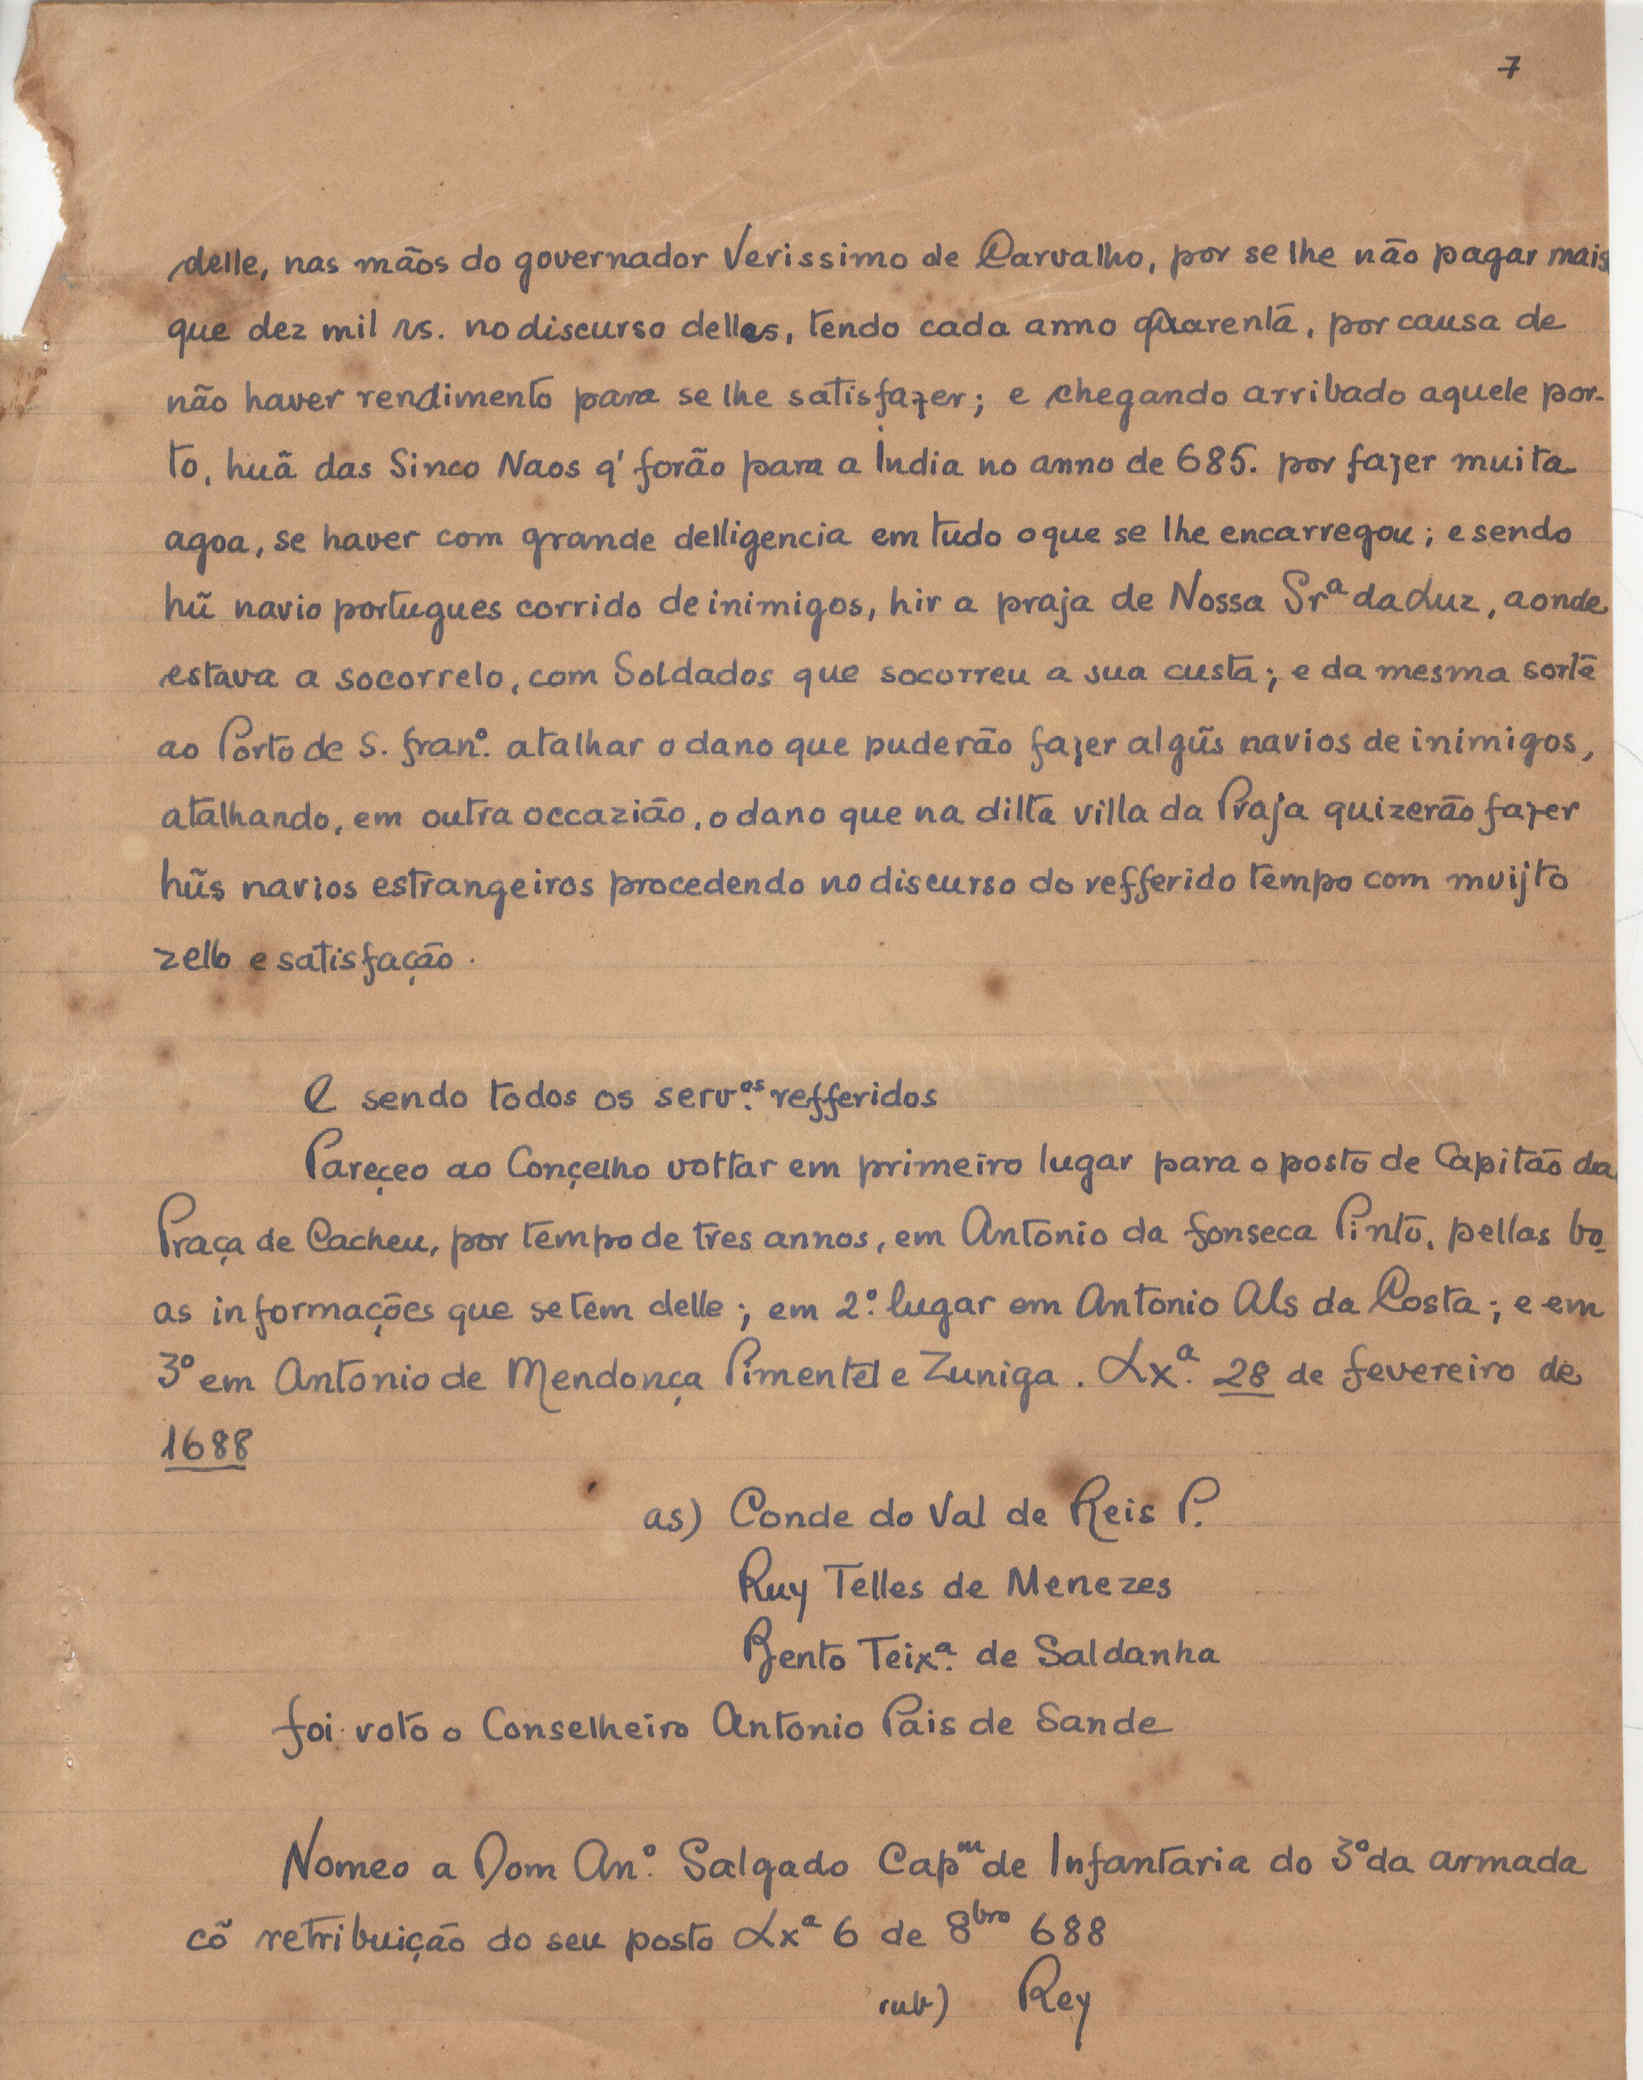 7
delle, nas mãos do governador Verissimo de Carvalho, por se lhe não pagar mais
que dez mil rs. no discurso delles, tendo cada anno quarenta, por causa de
não haver rendimento para se lhe satisfazer; e chegando arribado aquele por-
to, huã das Sinco Naos q' forão para a India no anno de 685. por fazer muita
agoa, se haver com grande delligencia em tudo o que se lhe encarregou; e sendo
hũ navio portugues corrido de inimigos, hir a praja de Nossa Srª da Luz, aonde
estava a socorrelo, com Soldados que socorreu a sua custa; e da mesma sorte
ao Porto de S. franº. atalhar o dano que puderão fazer algũs navios de inimigos,
atalhando, em outra occazião, o dano que na ditta villa da Praja quizerão fazer
hũs navios estrangeiros procedendo no discurso do refferido tempo com muijto
zello e satisfação.
E sendo todos os serv.ᵒˢ refferidos
Pareçeo ao Conçelho vottar em primeiro lugar para o posto de Capitão da
Praça de Cacheu, por tempo de tres annos, em Antonio da fonseca Pinto, pellas bo-
as informações que se tem delle; em 2º. lugar em Antonio Als da Costa; e em
3º em Antonio de Mendonça Pimentel e Zuniga. Lxª. 28 de fevereiro de
1688
as) Conde do Val de Reis P.
Ruy Telles de Menezes
Bento Teixª. de Saldanha
foi voto o Conselheiro Antonio Pais de Sande
Nomeo a Dom Anº. Salgado Capᵐ de Infantaria do 3º da armada
cõ retribuição do seu posto Lxª 6 de 8ᵇʳᵒ 688
rub) Rey